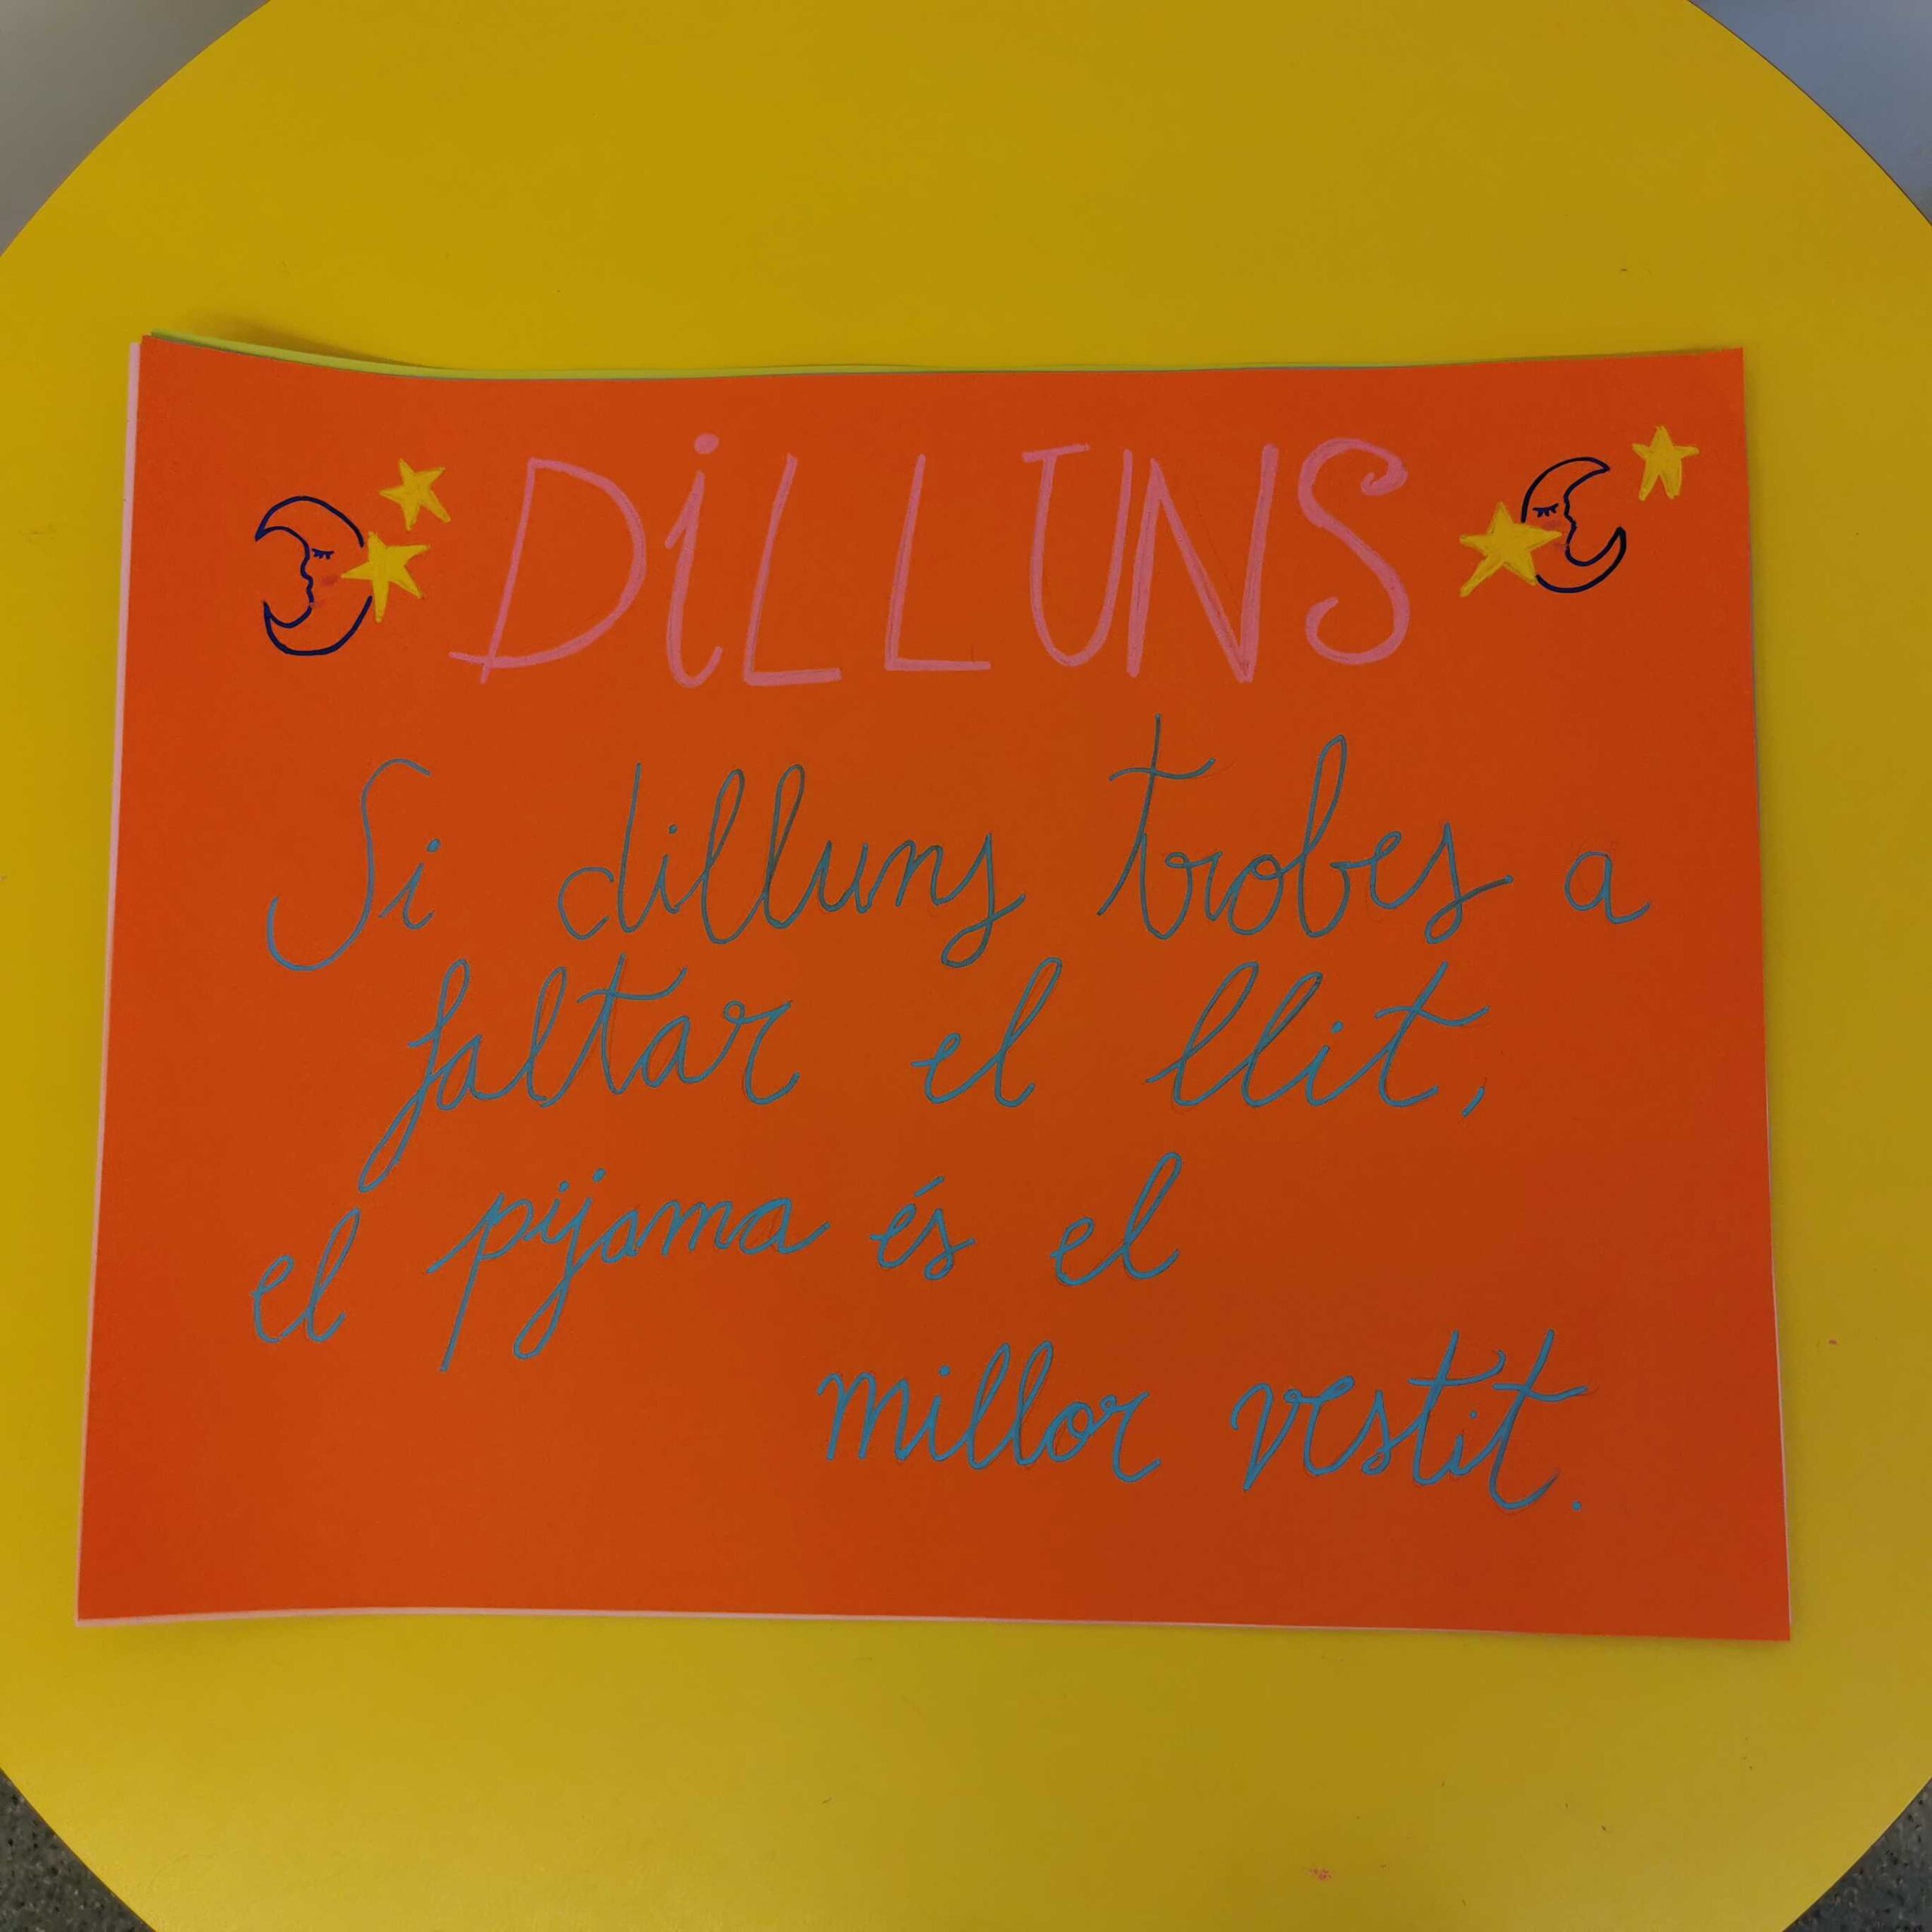 DiLLUNS
Si dilluns trobes a
faltar el llit,
el pijama és el
millor vestit.